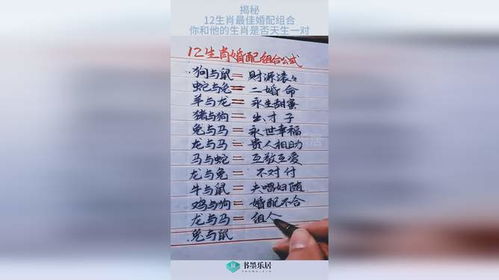 揭秘
12生肖最佳婚配组合
你和他的生肖是否天生一对
12生肖婚配组合公式
狗与鼠＝财源滚々
蛇与兔＝二婚命
羊与龙＝永生甜蜜
猪与狗＝生才子
兔与马＝永世幸福
龙与马＝贵人相助
马与蛇＝互敬互爱
龙与兔＝不对付
牛与鼠＝夫唱妇随
鸡与狗＝婚配不合
龙与马＝狙人
兔与鼠＝
书墨乐居